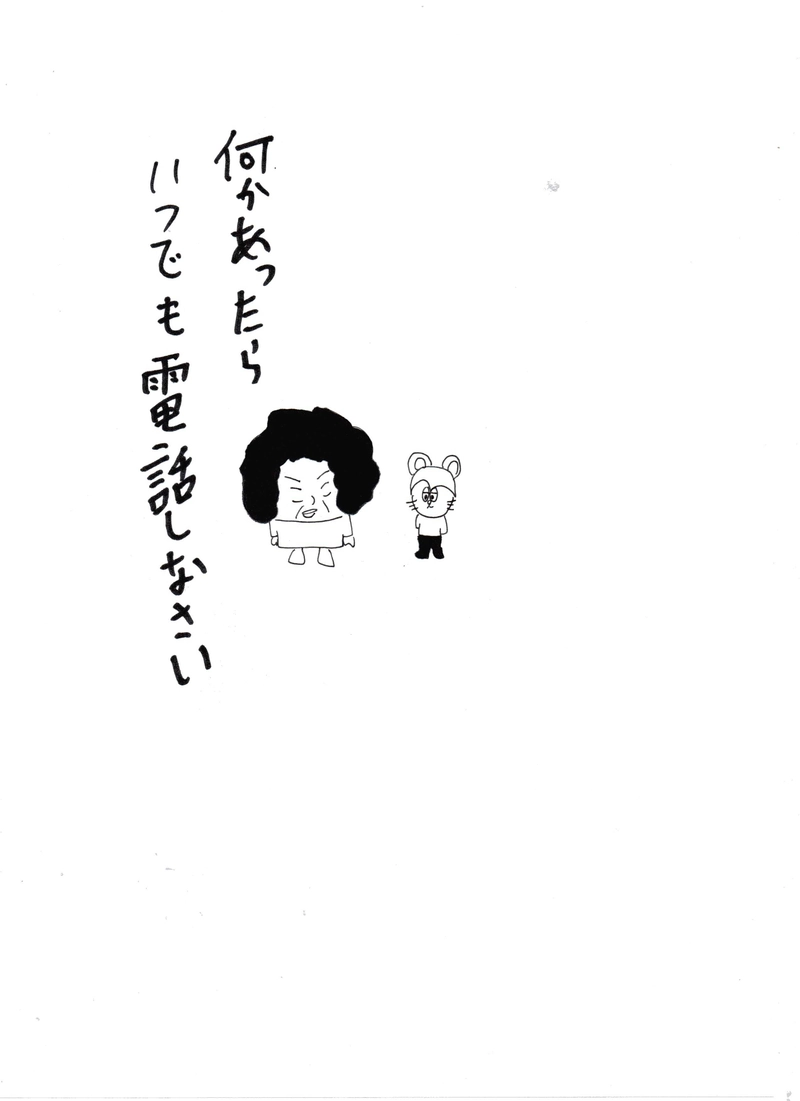 何かあったら
いつでも電話しなさい